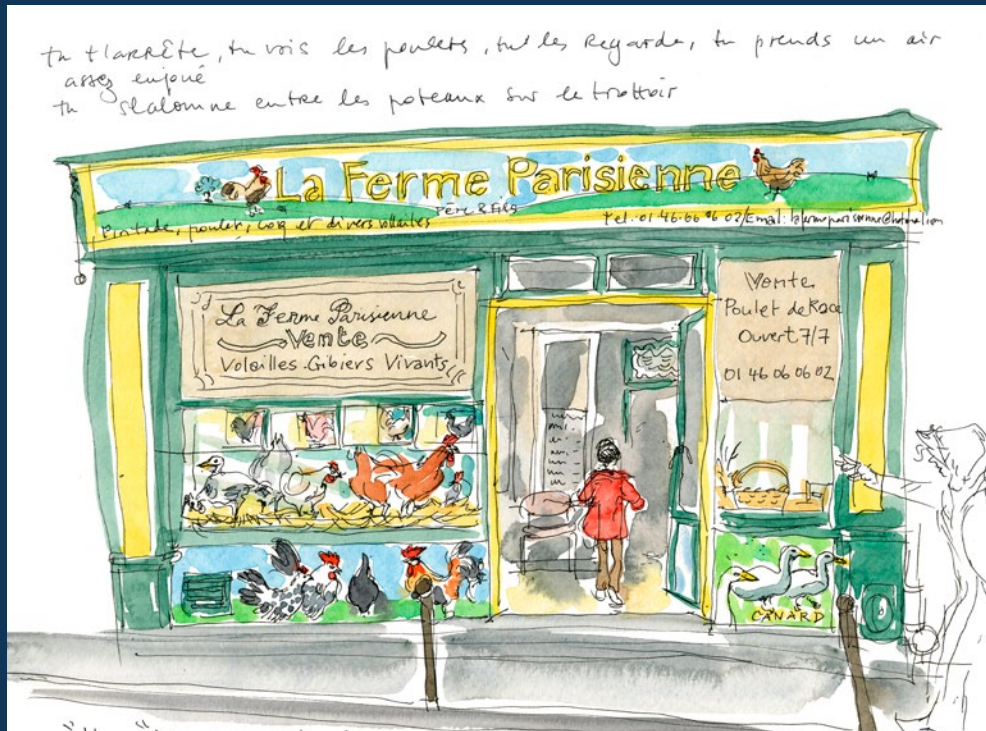 tu t'arrête, tu vois les poulets, tu les regarde, tu prends un air
assez enjoué
tu slalomne entre les poteaux sur le trottoir
La Ferme Parisienne
Père & Fils
Pintade, poulet, coq et divers volailles
Tel: 01 46 06 06 02/Email: lafermeparisienne@hotmail.com
La Ferme Parisienne
Vente
Volailles.Gibiers Vivants
Vente
Poulet de Race
Ouvert 7/7
01 46 06 06 02
CANARD